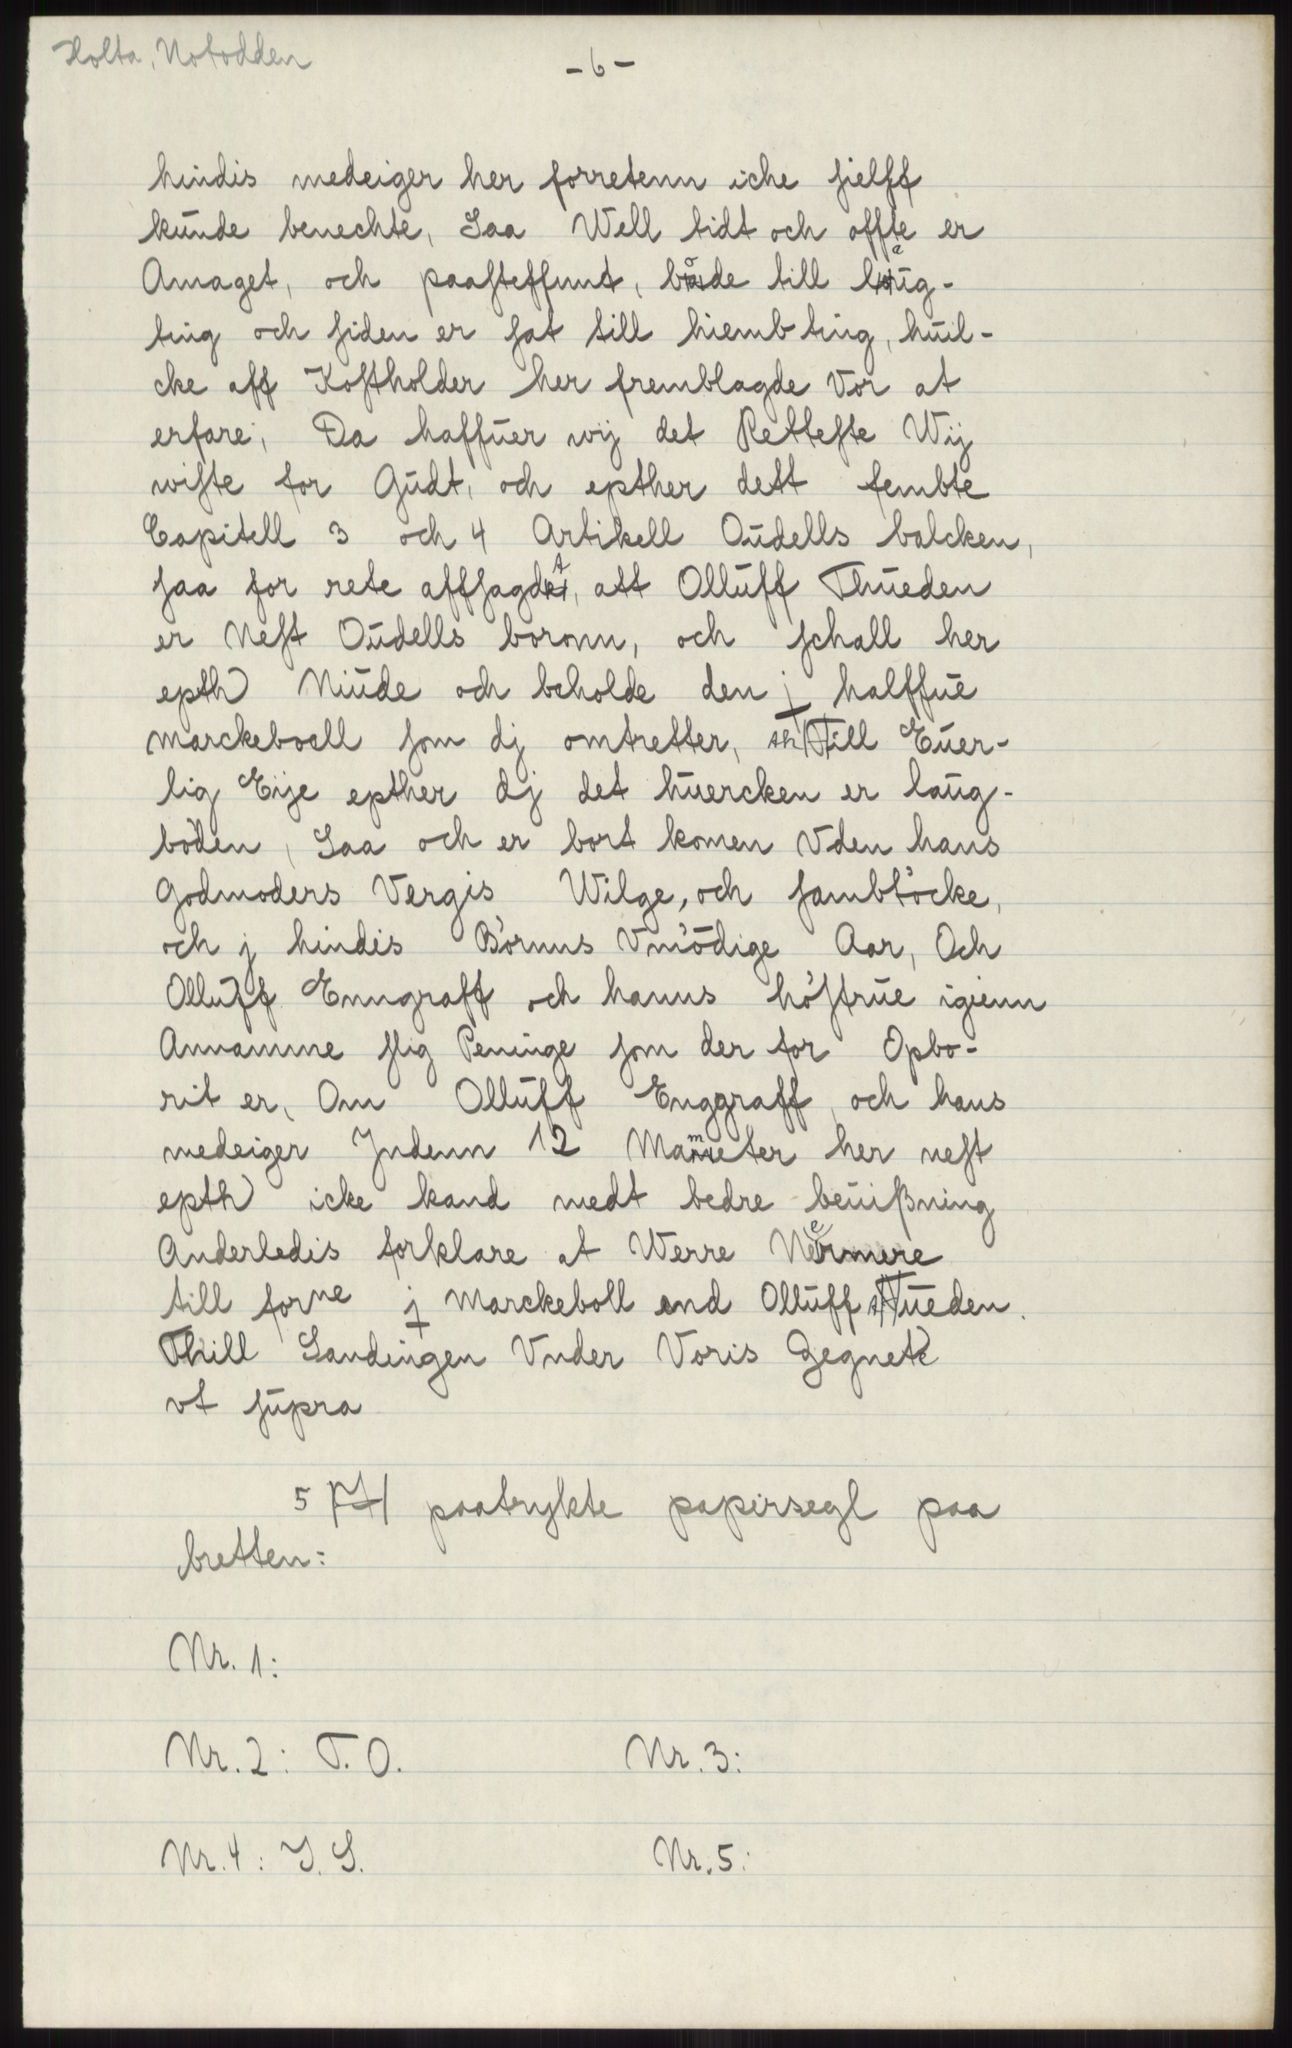 Holta, Notodden
- 6 -
hindis medeiger her forretenn iche sielff
kunde benechte, Saa Well tidt och offte er
Amaget, och paasteffunt, både till laug-
ting och siden er sat till hiembting, huil-
cke aff Kostholder her fremblagde vor at
erfare, Da haffuer wij det Retteste Wij
wiste for Gudt, och epther dett fembte
Capitell 3 och 4 Artikell Oudells balcken,
saa for rete affsagdt, att Olluff Thueden
er Nest Oudells boronn, och schall her
epth Niude och beholde den j halffue
marckeboell som dj omtretter, Till Euer-
lig Eije epther dj det huercken er laug-
böden, Saa och er bort komen Vden hans
Godmoders Vergis Wilge, och sambtöcke,
och j hindis Börnns Vmödige Aar, Och
Olluff Enngraff och hanns höstrue igienn
Annamme slig Peninge som der for Opbo-
rit er, Om Olluff Enggraff, och hans
medeiger Jndenn 12 Mameter her nest
epth icke kand medt bedre beuißning
Anderledis forklare at Werre Nermere
till forne j marckeboll end Olluff Tueden.
Thill Landingen Vnder Voris Zegnete
vt supra
5 paatrykte papirsegl paa
bretten:
Nr. 1:
Nr. 2: T. O. Nr. 3:
Nr. 4: J. S. Nr. 5: